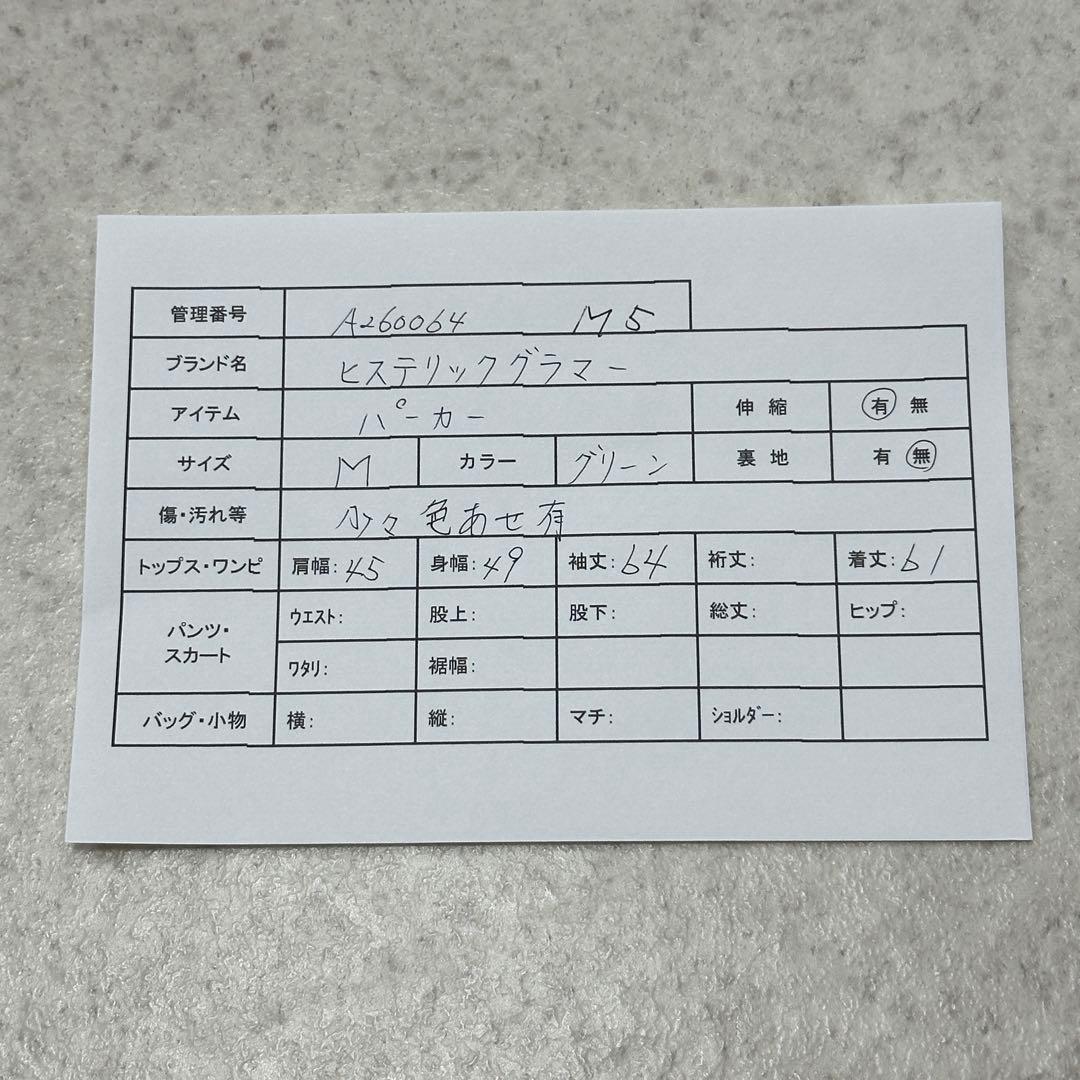 管理番号 A260064 M5
ブランド名 ヒステリックグラマー
アイテム パーカー 伸縮 有 無
サイズ M カラー グリーン 裏地 有 無
傷・汚れ等 少々色あせ有
トップス・ワンピ 肩幅:45 身幅:49 袖丈:64 裄丈: 着丈:61
パンツ・スカート ウエスト: 股上: 股下: 総丈: ヒップ:
ワタリ: 裾幅:
バッグ・小物 横: 縦: マチ: ショルダー: